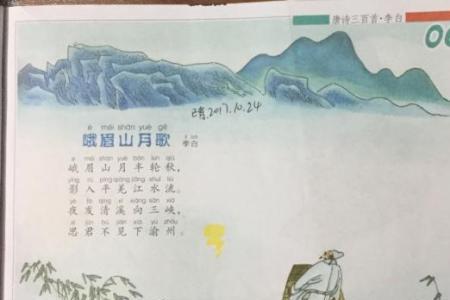 唐诗三百首·李白
已背2017.10.24
é méi shān yuè gē
峨眉山月歌
李白
é méi shān yuè bàn lún qiū
峨眉山月半轮秋，
yǐng rù píng qiāng jiāng shuǐ liú
影入平羌江水流。
yè fā qīng xī xiàng sān xiá
夜发清溪向三峡，
sī jūn bú jiàn xià yú zhōu
思君不见下渝州。